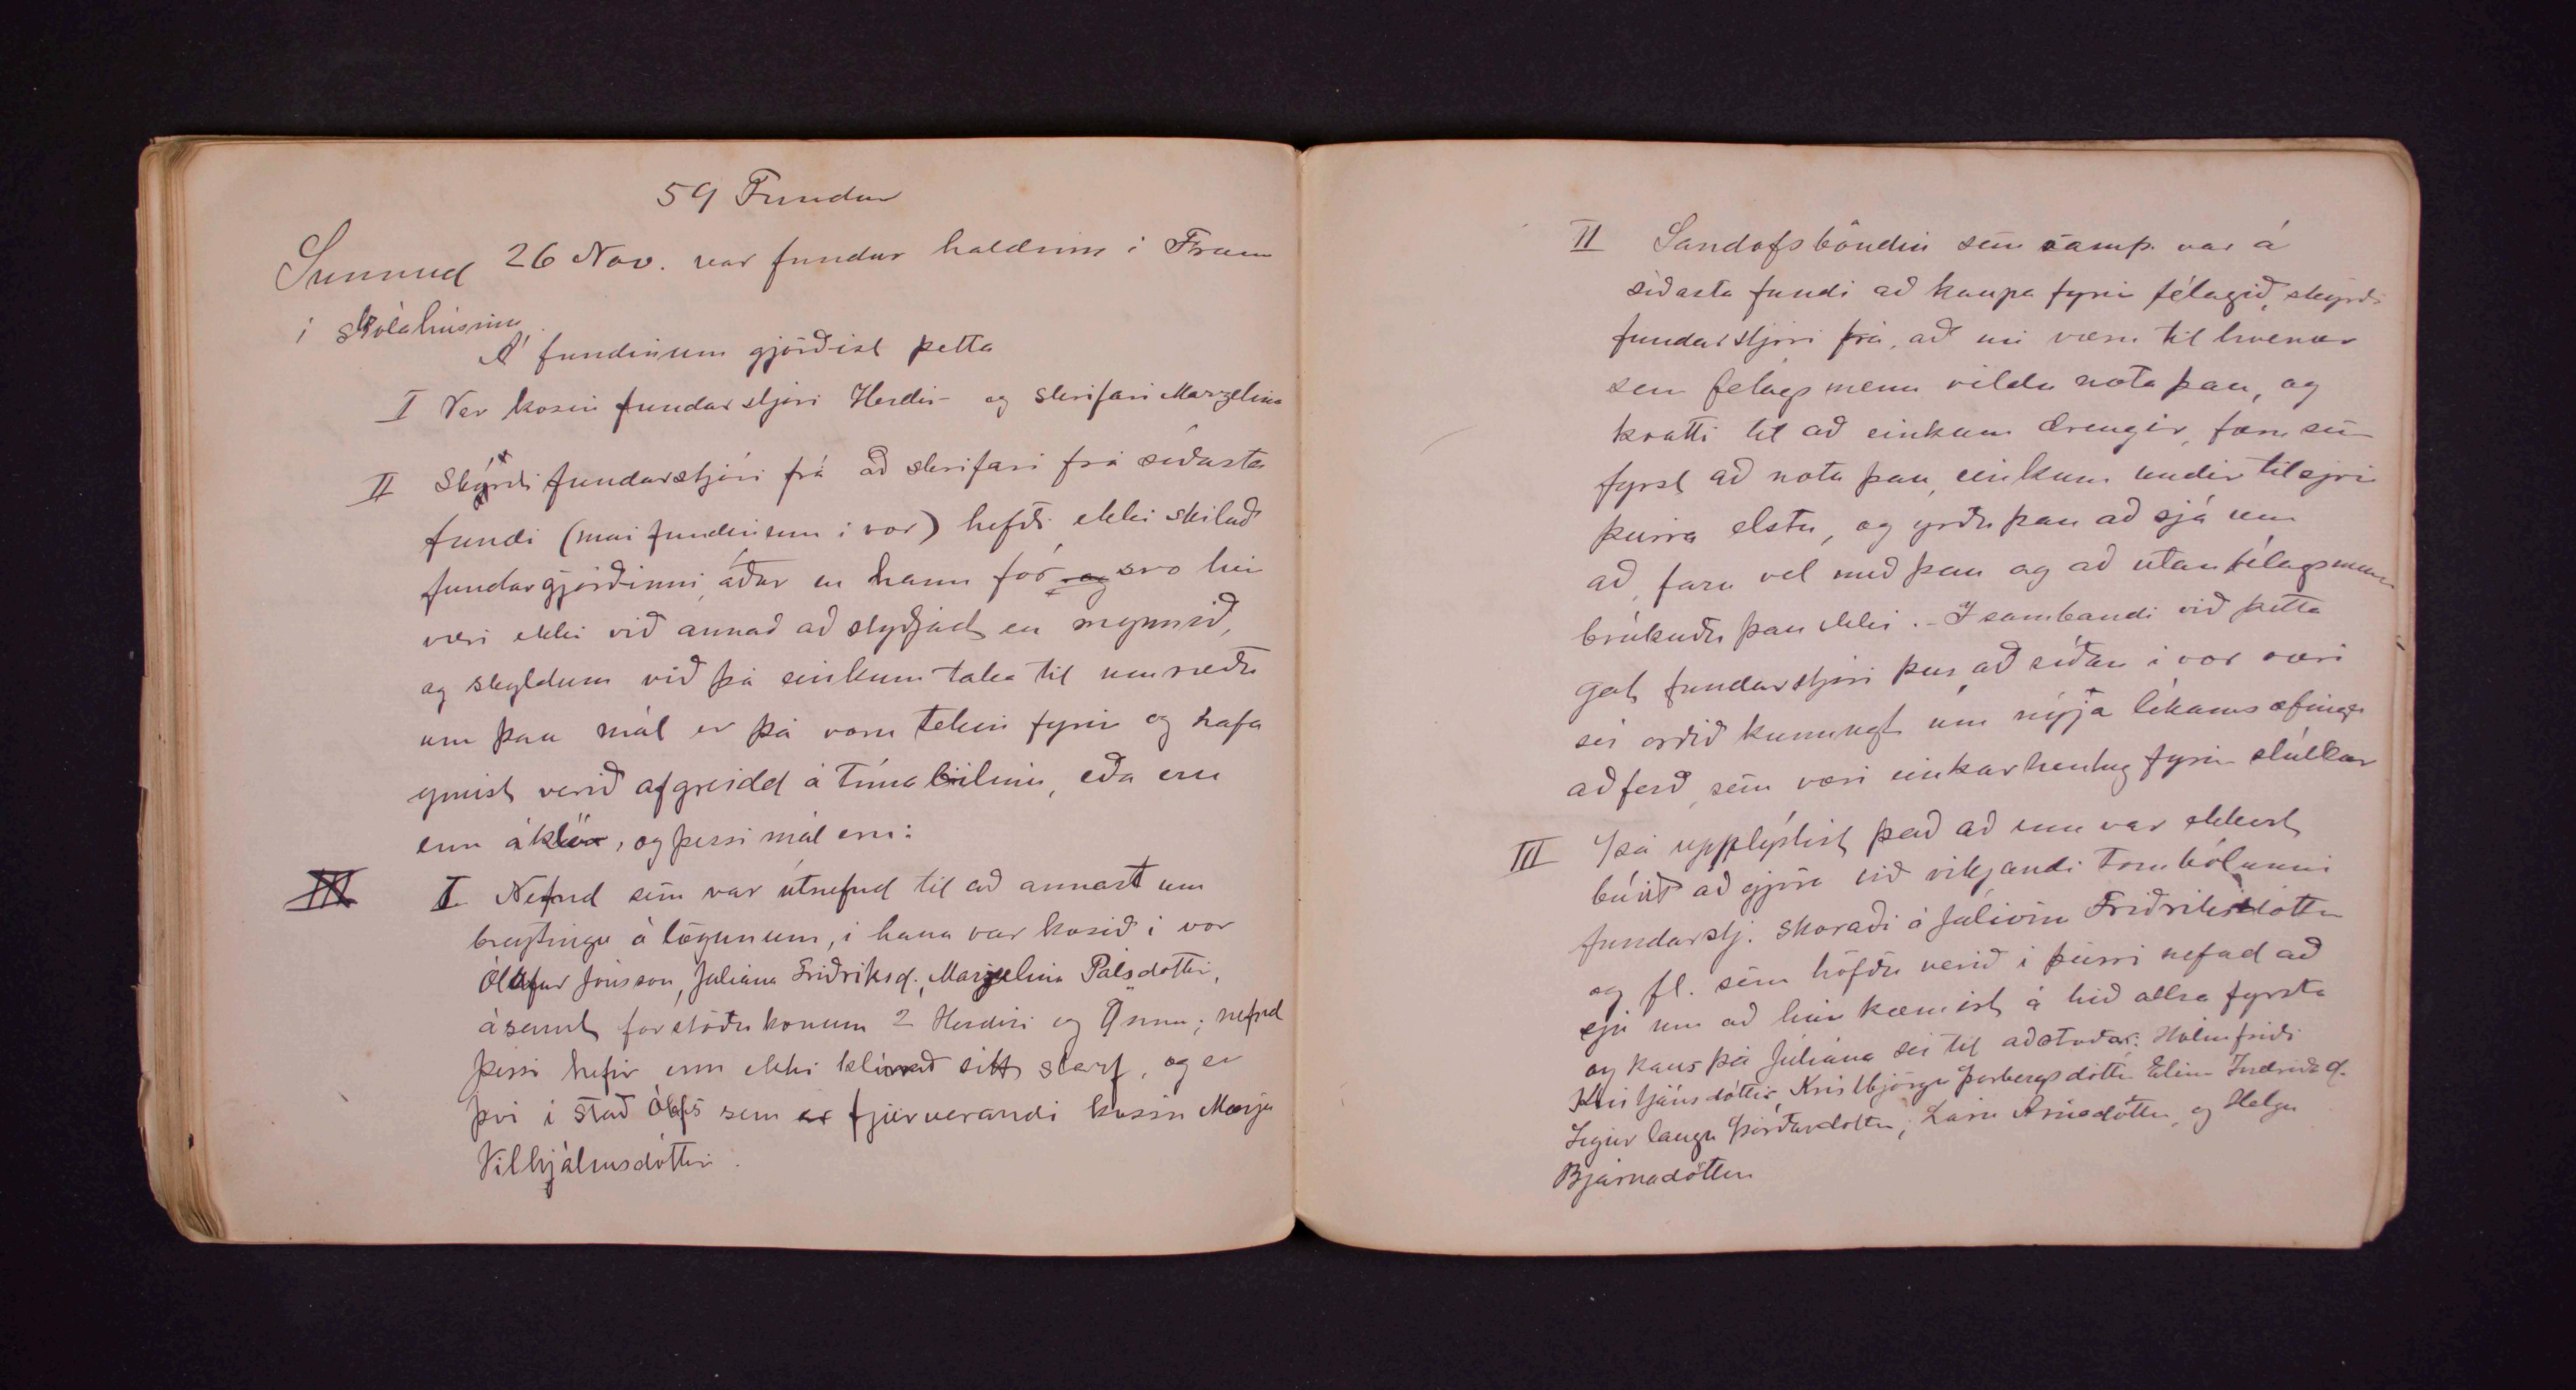 59 Fundur
Sunnud 26 Nov. var fundur haldinn i Fram
i skólahúsinu
Á fundinum gjörðist þetta
I Var kosin fundarstjóri Herdís og skrifari Marzelina
II Skýrði fundarstjóri frá að skrifari frá síðasta
fundi (mai fundinum i vor) hefði ekki skilað
fundargjörðinni, áður en hann fór og svo hér
væri ekki við annað að styðjast en mynnið,
og skyldum við þá einkum taka til umræðu
um þau mál er þá voru tekin fyrir og hafa
ymist verið afgreidd á tímabilinu, eða eru
enn á , og þessi mál eru:
III I Nefnd sem var útnefnd til að annast um
breytingu á lögunum, i hana var kosið i vor
Ólafur Jónsson, Juliana Friðriksd., Marzelina Pálsdóttir,
ásamt forstöðukonum 2 Herdísi og Önnu; nefnd
þessi hefir enn ekki klárað sitt starf, og er
þvi i stað Ólafs sem er fjærverandi kosin Marja
Vilhjálmsdóttir.
II Sandofsböndin sem samþ. var á
síðasta fundi að kaupa fyrir félagið, skýrði
fundarstjóri frá, að nú væru til hvenær
sem félagsmenn vildu nota þau, og
hvatti til að einkum drengir, færu sem
fyrst að nota þau, einkum undir tilsjón
þeirra elstu, og yrðu þau að sjá um
að, fara vel með þau og að utanfélagsmenn
brúkuðu þau ekki. - Í sambandi við þetta
gat fundarstjóri þess að síðan i vor væri
sér orðið kunnugt um nýja líkamsæfinga
aðferð, sem væri einkar hentug fyrir stúlkur
III Þá upplýstist það að enn var ekkert
búið að gjöra við vikjandi Tombólunni
fundarstj. skoraði á Júlíönu Friðriksdóttir
og fl. sem höfðu verið i þeirri nefnd að
sjá um að hún kæmist á hið allra fyrsta
og kaus þá Júliana sér til aðstoðar: Hólmfríði
Kristjánsdóttir, Kristbjörgu Þorbergsdóttir Elinu Indriðad.
Sigurlaugu Þórðardóttir, Láru Árnadóttir, og Helgu
Bjarnadóttir